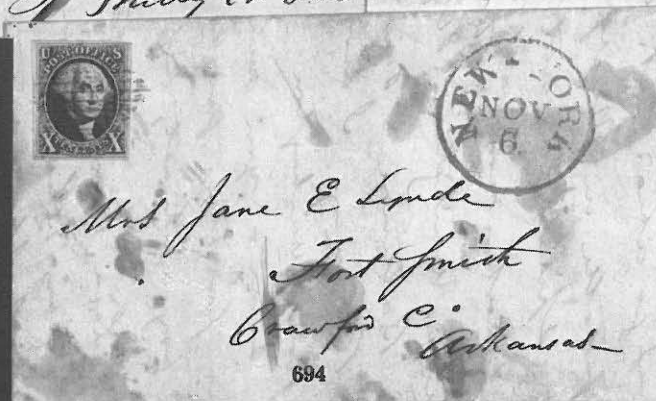 U S
POST OFFICE
X X
NEW YORK
NOV
6
Mrs Jane E Lynde
Fort Smith
Crawford Co
Arkansas
694